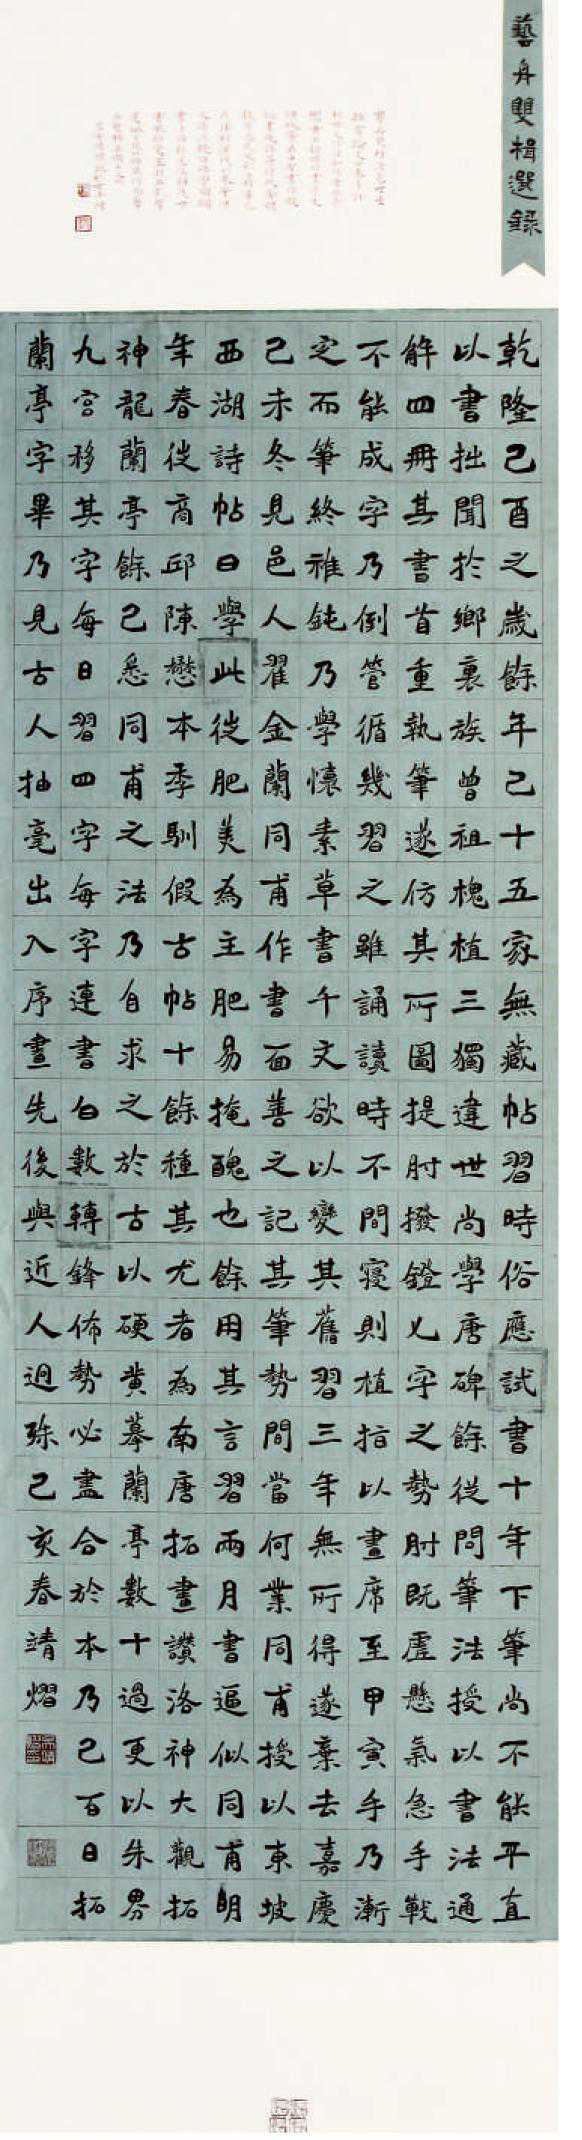 藝舟雙楫選錄
乾隆己酉之歲餘年已十五家無藏帖習時俗應試書十年下筆尚不能平直
以書拙聞於鄉裏族曾祖槐植三獨違世尚學唐碑餘從問筆法授以書法通
解四冊其書首重執筆遂仿其所圖提肘撥鐙七字之勢肘既虛懸氣急手戰
不能成字乃倒管循幾習之雖誦讀時不間寢則植指以畫席至甲寅手乃漸
定而筆終稚鈍乃學懷素草書千文欲以變其舊習三年無所得遂棄去嘉慶
己未冬見邑人翟金蘭同甫作書面善之記其筆勢間當何業同甫授以東坡
西湖詩帖曰學此從肥美為主肥易掩醜也餘用其言習兩月書逼似同甫明
年春從商邱陳懋本季馴假古帖十餘種其尤者為南唐拓畫讚洛神大觀拓
神龍蘭亭餘已悉同甫之法乃自求之於古以硬黃摹蘭亭數十過更以朱界
九宮移其字每日習四字每字連書百數轉鋒佈勢必盡合於本乃已百日拓
蘭亭字畢乃見古人抽毫出入序畫先後與近人迥殊己亥春靖熠